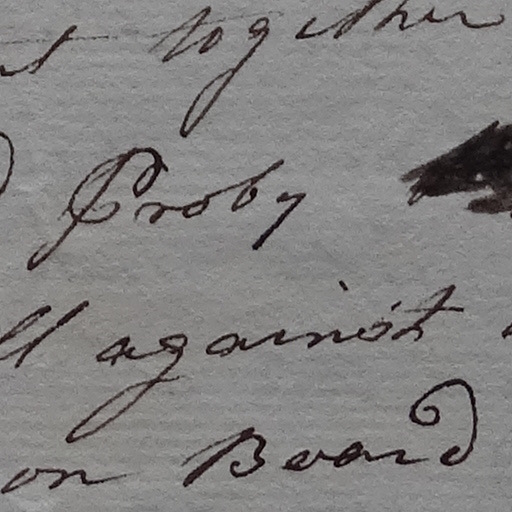 together
Proby
against
on Board